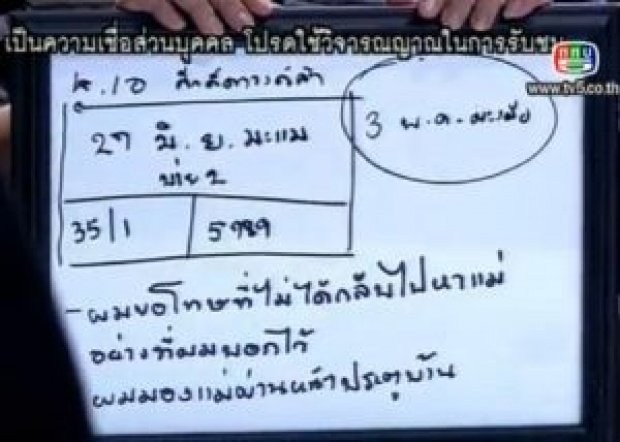 เป็นความเชื่อส่วนบุคคล โปรดใช้วิจารณญาณในการรับชม
www.tv5.co.th
27 มิ.ย. มะแม
บ่าย 2
3 พ.ค. มะเมีย
35/1
5989
- ผมขอโทษที่ไม่ได้กลับไปหาแม่
อย่างที่ผมบอกไว้
ผมมองแม่ผ่านหน้าประตูบ้าน